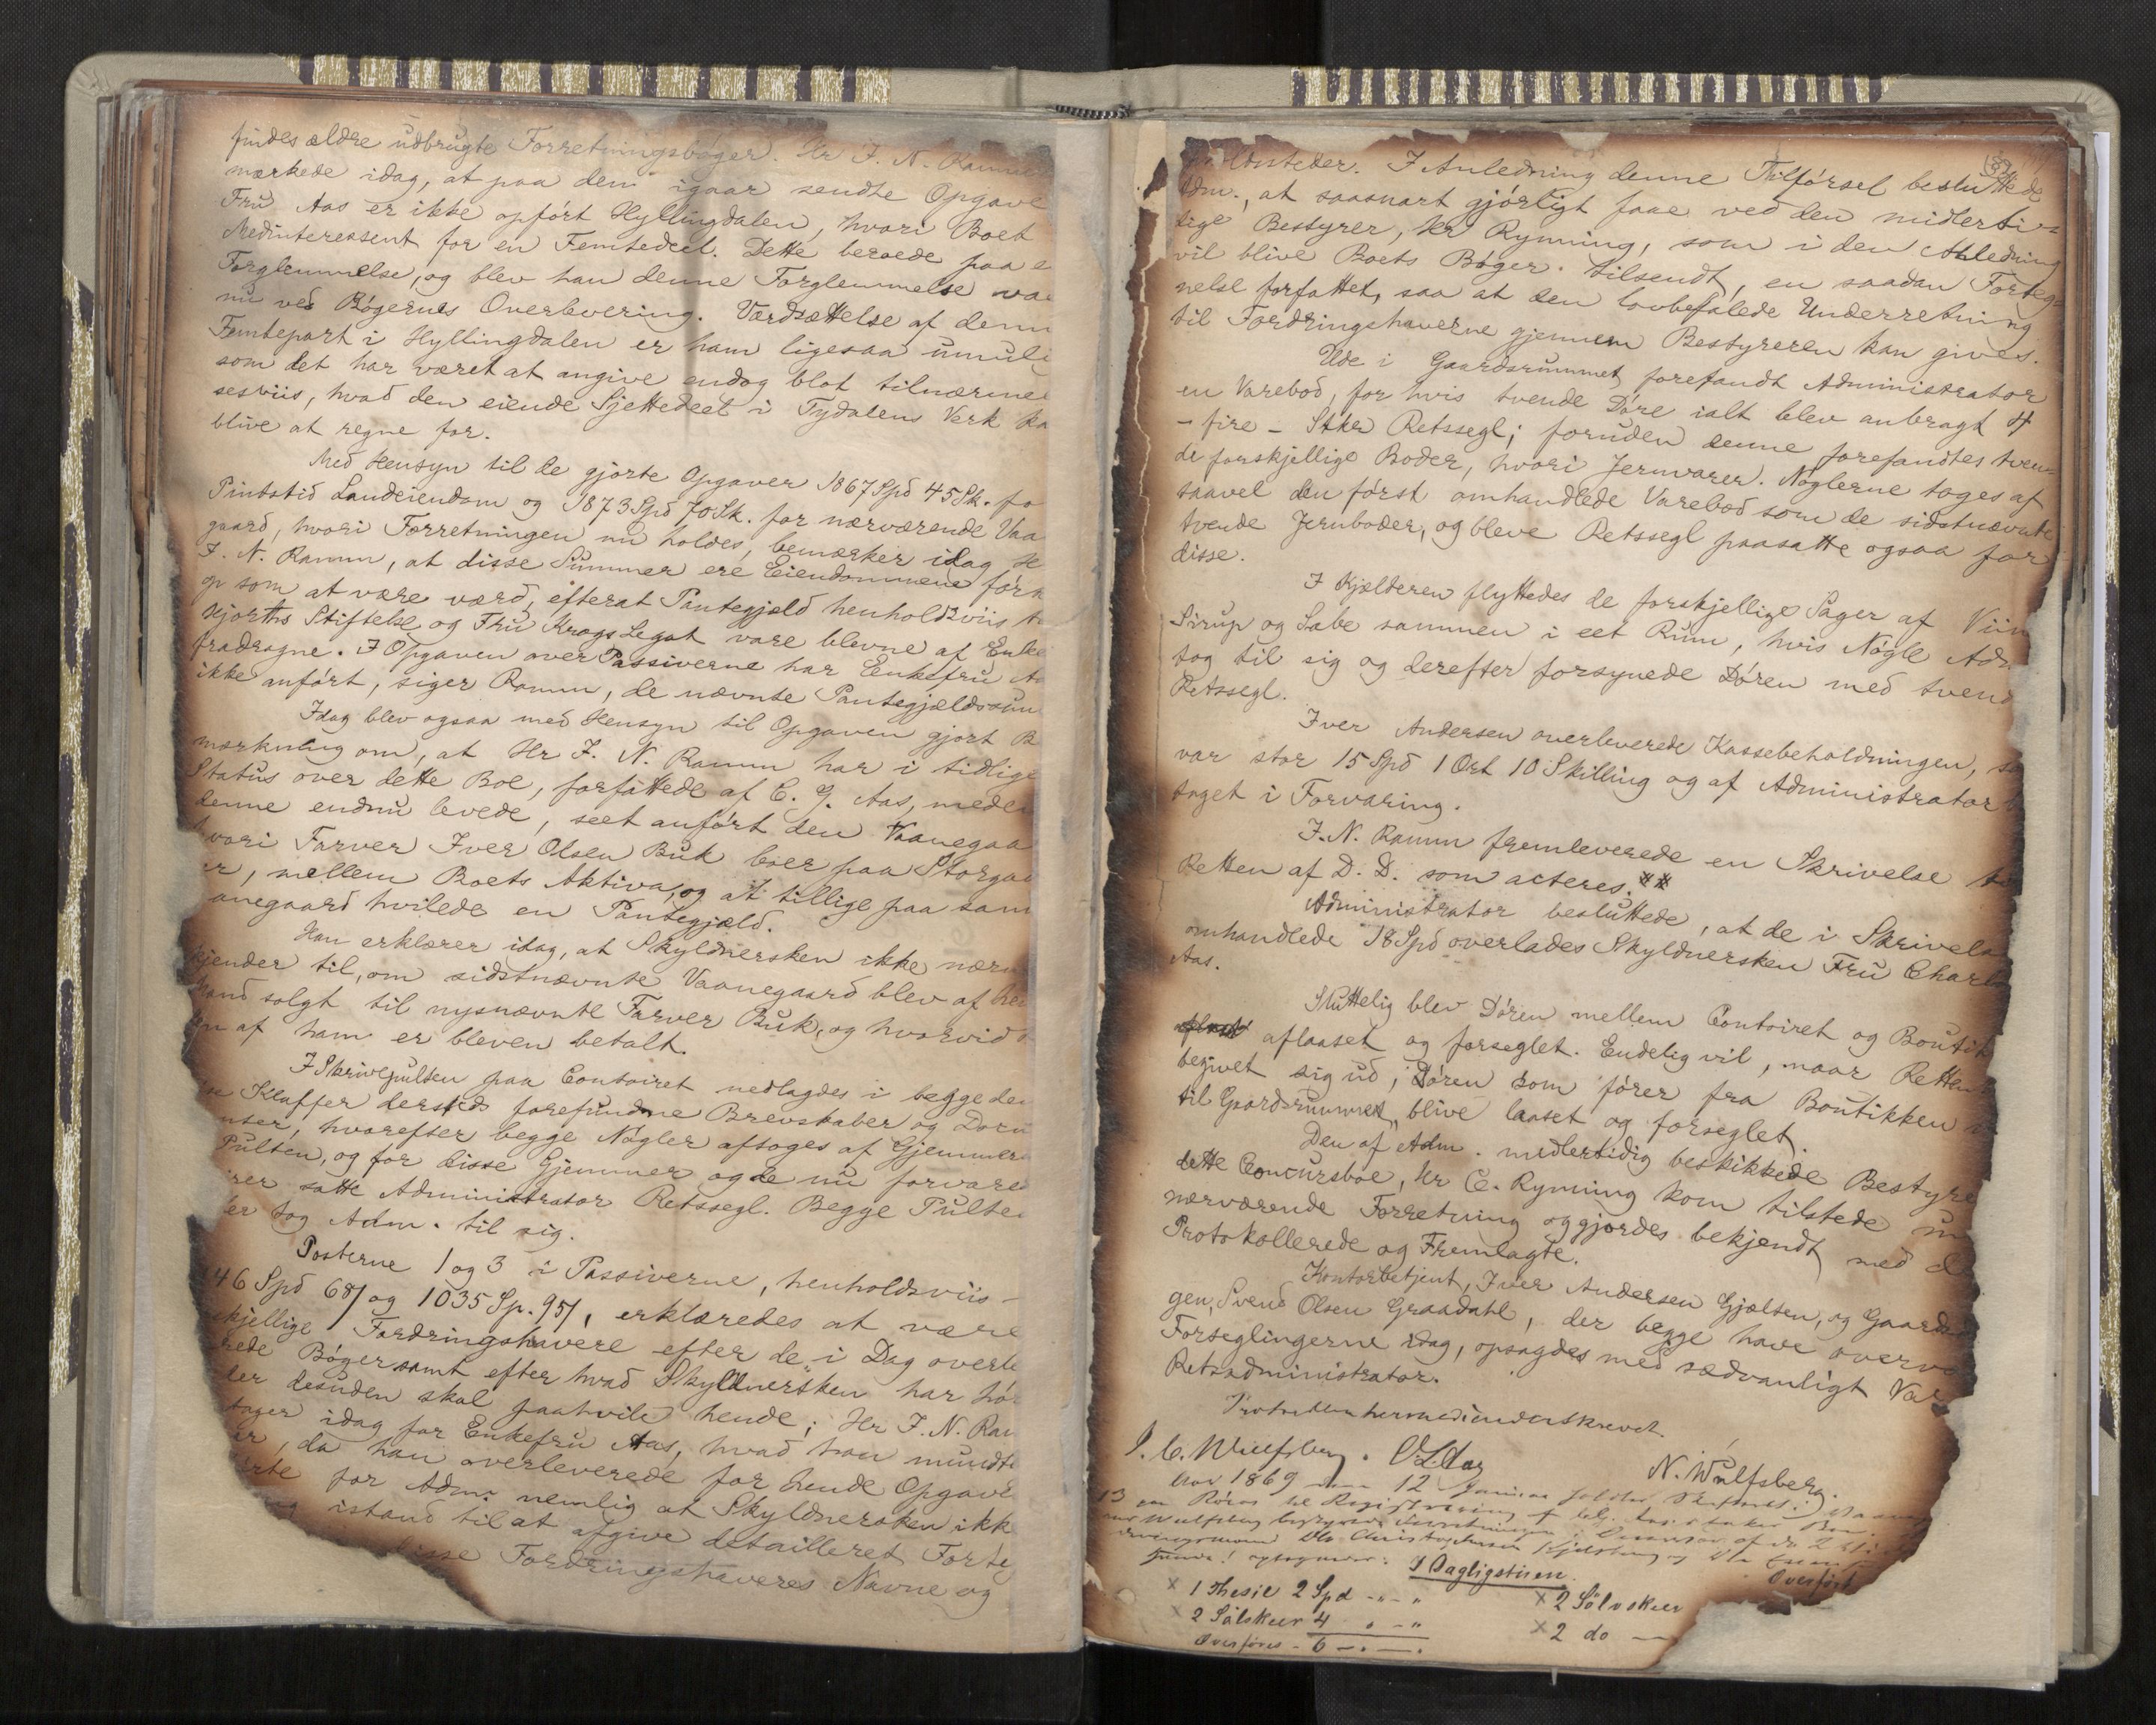 findes ældre udbrugte Forretningsbøger. Hr J. N. Ramm
mærkede idag, at paa den igaar sendte Opgave
Fru Aas er ikke opført Hyllingdalen, hvori Boet
Medinteressent for en Femtedeel. Dette beroede paa e
Forglemmelse, og blev han denne Forglemmelse va
nu ved Bøgernes Overlevering. Værdsættelse af denn
Femtepart i Hyllingdalen er ham ligesaa umuli
som det har været at angive endog blot tilnærmel
sesviis, hvad den eiende Sjettedeel i Tydalens Verk ka
blive at regne for.
Med Hensyn til de gjorte Opgaver 1867 Spd 45 Sk. fo
Pintstid Landeiendom og 1873 Spd 70 Sk. for nærværende Vaa
gaard, hvori Forretningen nu holdes, bemærker idag H
J. N. Ramm, at disse Summer ere Eiendommeneført
op som at være værd, efterat Pantegjeld henholdsviis t
Hjorths Stiftelse og Fru Krogs Legat vare blevne af Enke
fradragne. I Opgaven over Passiverne har Enkefru A
ikke anført, siger Ramm, de nævnte Pantegjældssum
Idag blev ogsaa med Hensyn til Opgaven gjort B
mærkning om, at Hr J. N. Ramm har i tidlige
Status over dette Boe, forfattede af C. G. Aas, meden
denne endnu levede, seet anført den Vaanegaa
hvori Farver Iver Olsen Buk boer paa Storgaa
er, mellem Boets Aktiva, og at tillige paa sam
anegaard hvilede en Pantegjæld.
Han erklærer idag, at Skyldnersken ikke nærm
kjender til, om sidstnævnte Vaanegaard blev af he
Mand solgt til nysnævnte Farver Buk, og hvorvid
en af ham er bleven betalt.
I Skrivepulten paa Contoiret nedlagdes i begge de
Klaffer dersteds forefundne Brevskaber og Doku
nter, hvorefter begge Nøgler aftoges af Gjemmer
Pulten, og for disse Gjemmer og de nu forvare
rer satte Administrator Retssegl. Begge Pulte
ler tog Adm. til sig.
Posterne 1 og 3 i Passiverne, henholdsviis –
46 Spd 68/ og 1035 Sp. 95/, erklæredes at være
skjellige Fordringshavere efter de i Dag overle
rede Bøger samt efter hvad Skyldnersken har hø
ler desuden skal paahvile hende; Hr J. N. Ram
tager idag for Enkefru Aas, hvad han mundt
er, da han overleverede for hende Opgave
ørte for Adm. nemlig at Skyldnersken ikk
istand til at afgive detailleret Forte
disse Fordringshaveres Navne og
holdssteder. I Anledning denne Tilførsel besluttede
Adm., at saasnart gjørligt faae ved den midlerti-
dige Bestyrer, Hr Rynning, som i den Anledning
vil blive Boets Bøger tilsendt, en saadan Forteg-
nelse forfattet, saa at den lovbefalede Underretning
til Fordringshaverne gjennem Bestyreren kan gives.
Ude i Gaardsrummet forefandt Administrator
en Varebod, for hvis tvende Døre ialt blev anbragt 4
– fire – Stkr Retssegl; foruden denne forefandtes tven-
de forskjellige Boder, hvori Jernvarer. Nøglerne toges af
saavel den først omhandlede Varebod som de sidstnævnte
tvende Jernboder, og bleve Retssegl paasatte ogsaa for
disse.
I Kjælderen flyttedes de forskjellige Sager af Viin
Sirup og Sæbe sammen i eet Rum, hvis Nøgle Adm
tog til sig og derefter forsynede Døren med tvend
Retssegl.
Iver Andersen overleverede Kassebeholdningen, so
var stor 15 Spd 1 Ort 10 Skilling og af Administrator b
taget i Forvaring.
J. N. Ramm fremleverede en Skrivelse til
Retten af D. D. som acteres. **
Administrator besluttede, at de i Skrivels
omhandlede 18 Spd overlades Skyldnersken Fru Charl
Aas.
Sluttelig blev Døren mellem Contoiret og Boutik
aflaaset og forseglet. Endelig vil, naar Retten
begivet sig ud, Døren som fører fra Boutikken
til Gaardsrummet, blive laaset og forseglet
Den af Adm. midlertidig beskikkede Bestyre
dette Concursboe, Hr C. Rynning kom tilstede un
nærværende Forretning og gjordes bekjendt med d
Protokollerede og Fremlagte.
Kontorbetjent, Iver Andersen Gjælsen, og Gaards
gen, Svend Olsen Graadahl, der begge have overv
Forseglingerne idag, opsagdes med sædvanligt Va
Retsadministrator.
Protocollen hermed underskrevet.
J. C. Wulfsberg. N. Wulfsberg.
Aar 1869 den 12 Januar
I Dagligstuen.
Overført
× 1 Thesie 2 Spd -"-"
× 2 Sölvskeer
× 2 Sølskeer 4 " -"
× 2 do —
Overføres - 6 -.-.